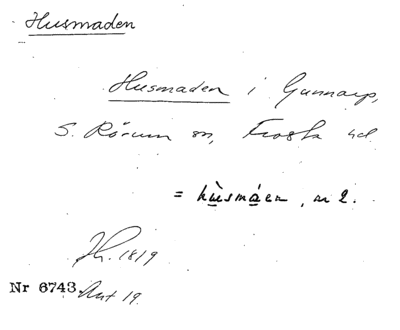 Husmaden
Husmaden i Gunnarp,
S. Rörum sn, Frosta hd
= hùsmáen, m 2.
Jh. 1819
Nr 6743. Ant 19.